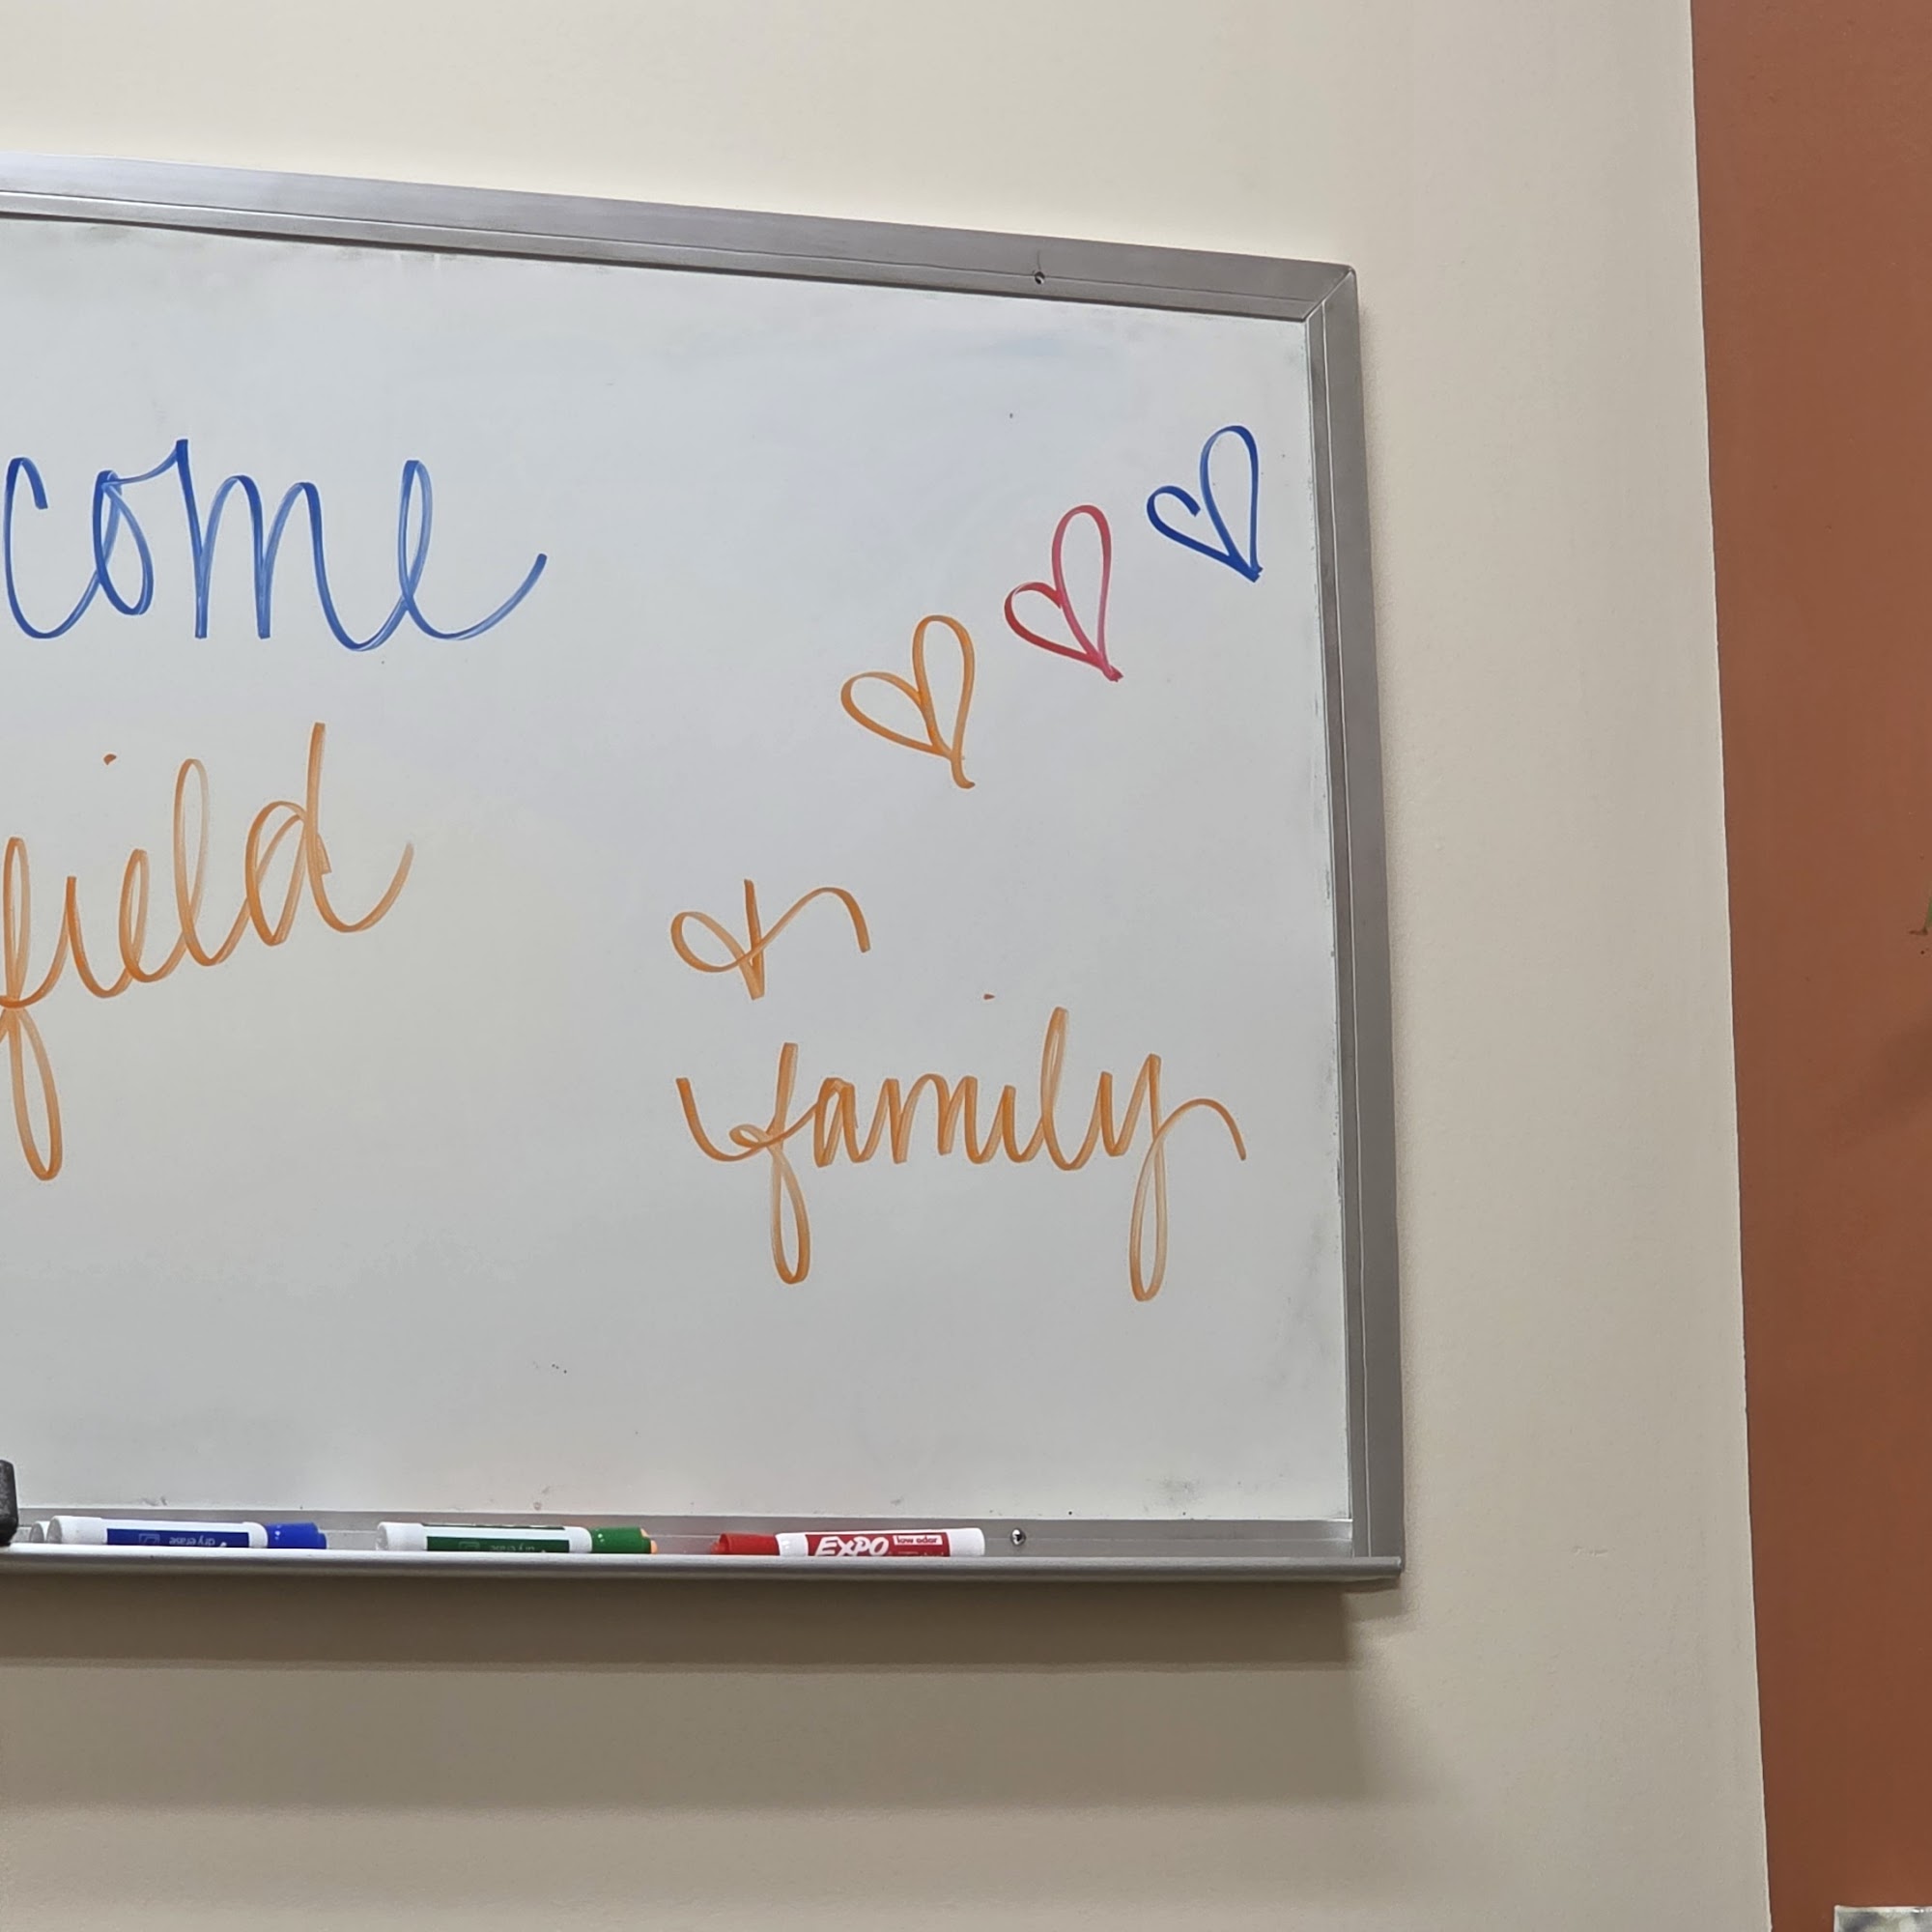 come
field
&
family
dry erase
EXPO low odor